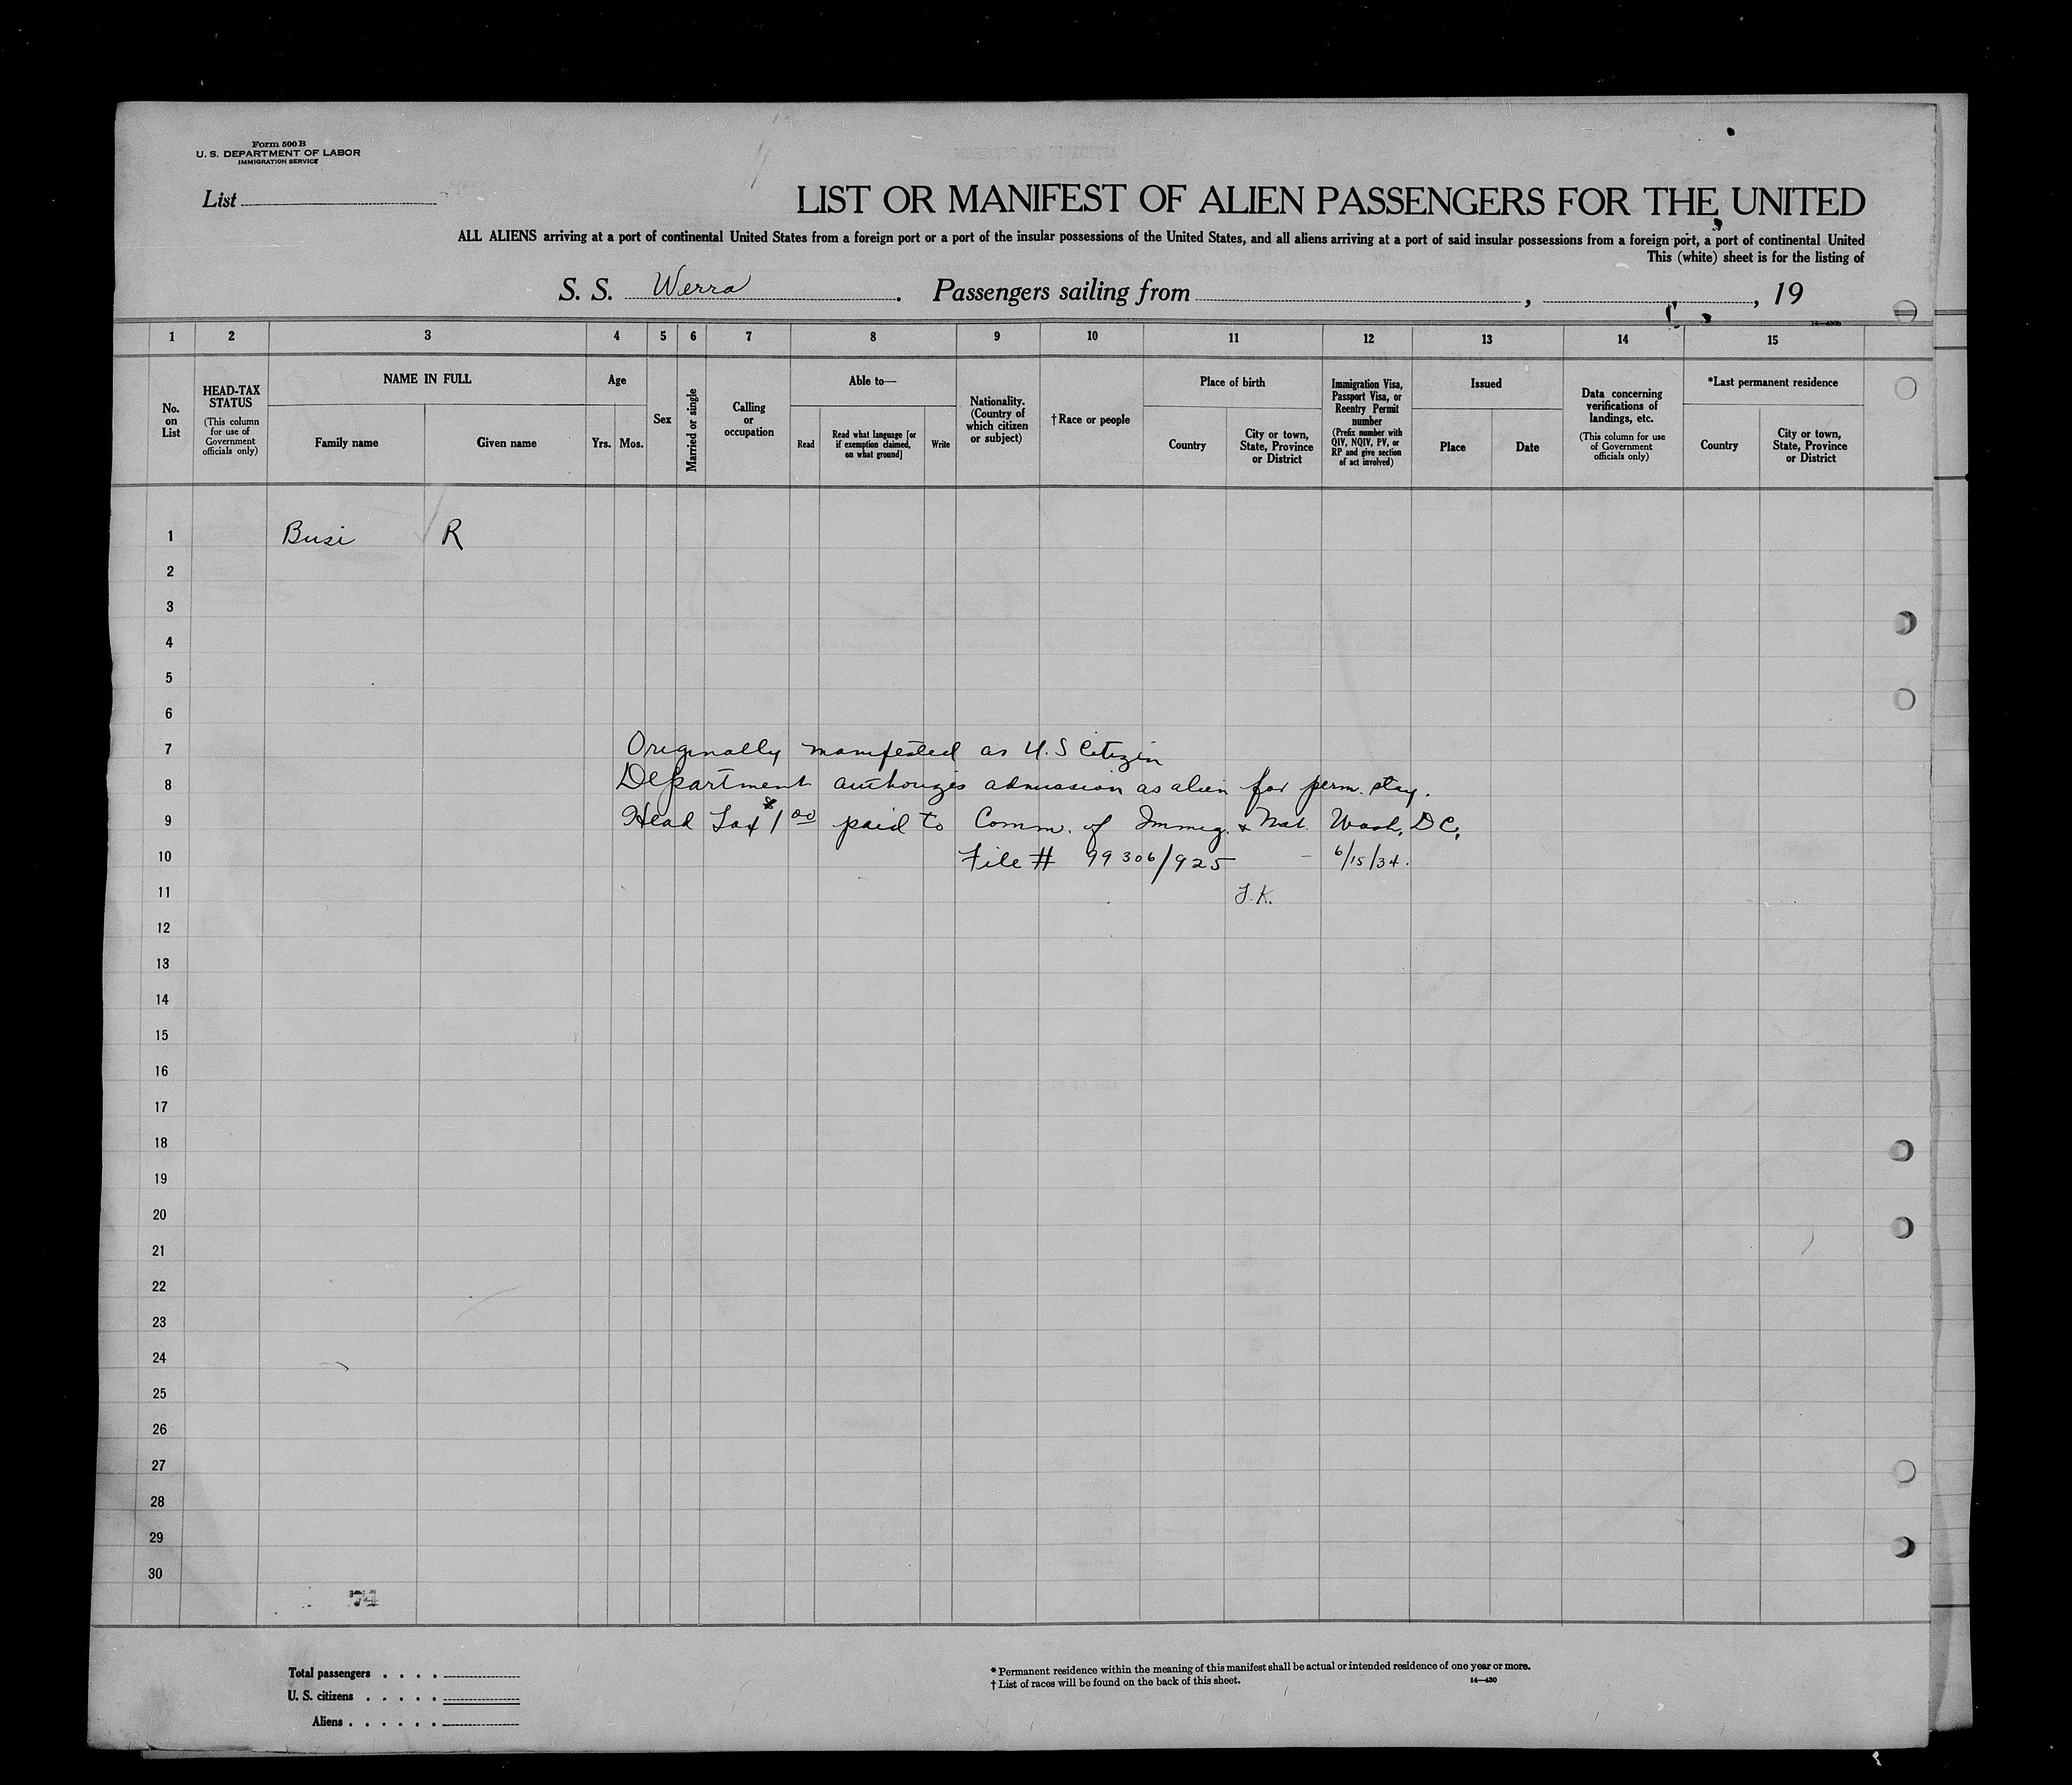 Form 500 B
U. S. DEPARTMENT OF LABOR
IMMIGRATION SERVICE
List
LIST OR MANIFEST OF ALIEN PASSENGERS FOR THE UNITED
ALL ALIENS arriving at a port of continental United States from a foreign port or a port of the insular possessions of the United States, and all aliens arriving at a port of said insular possessions from a foreign port, a port of continental United
This (white) sheet is for the listing of
S. S. Werra. Passengers sailing from , , 19
14—430b
1 2 3 4 5 6 7 8 9 10 11 12 13 14 15
No. on List
HEAD-TAX STATUS
(This column for use of Government officials only)
NAME IN FULL
Family name
Given name
Age
Yrs. Mos.
Sex
Married or single
Calling or occupation
Able to—
Read
Read what language [or if exemption claimed, on what ground]
Write
Nationality. (Country of which citizen or subject)
† Race or people
Place of birth
Country
City or town, State, Province or District
Immigration Visa, Passport Visa, or Reentry Permit number
(Prefix number with QIV, NQIV, PV, or RP and give section of act involved)
Issued
Place
Date
Data concerning verifications of landings, etc.
(This column for use of Government officials only)
*Last permanent residence
Country
City or town, State, Province or District
1 Busi R
2
3
4
5
6
7 Originally manifested as U.S Citizen
8 Department authorizes admission as alien for perm. stay.
9 Head Tax $1 00 paid to Comm. of Immig. & Nat. Wash, DC,
10 File # 99306/925 - 6/15/34.
11 J.K.
12
13
14
15
16
17
18
19
20
21
22
23
24
25
26
27
28
29
30
74
Total passengers . . . .
U. S. citizens . . . . .
Aliens . . . . . .
* Permanent residence within the meaning of this manifest shall be actual or intended residence of one year or more.
† List of races will be found on the back of this sheet.
14—430